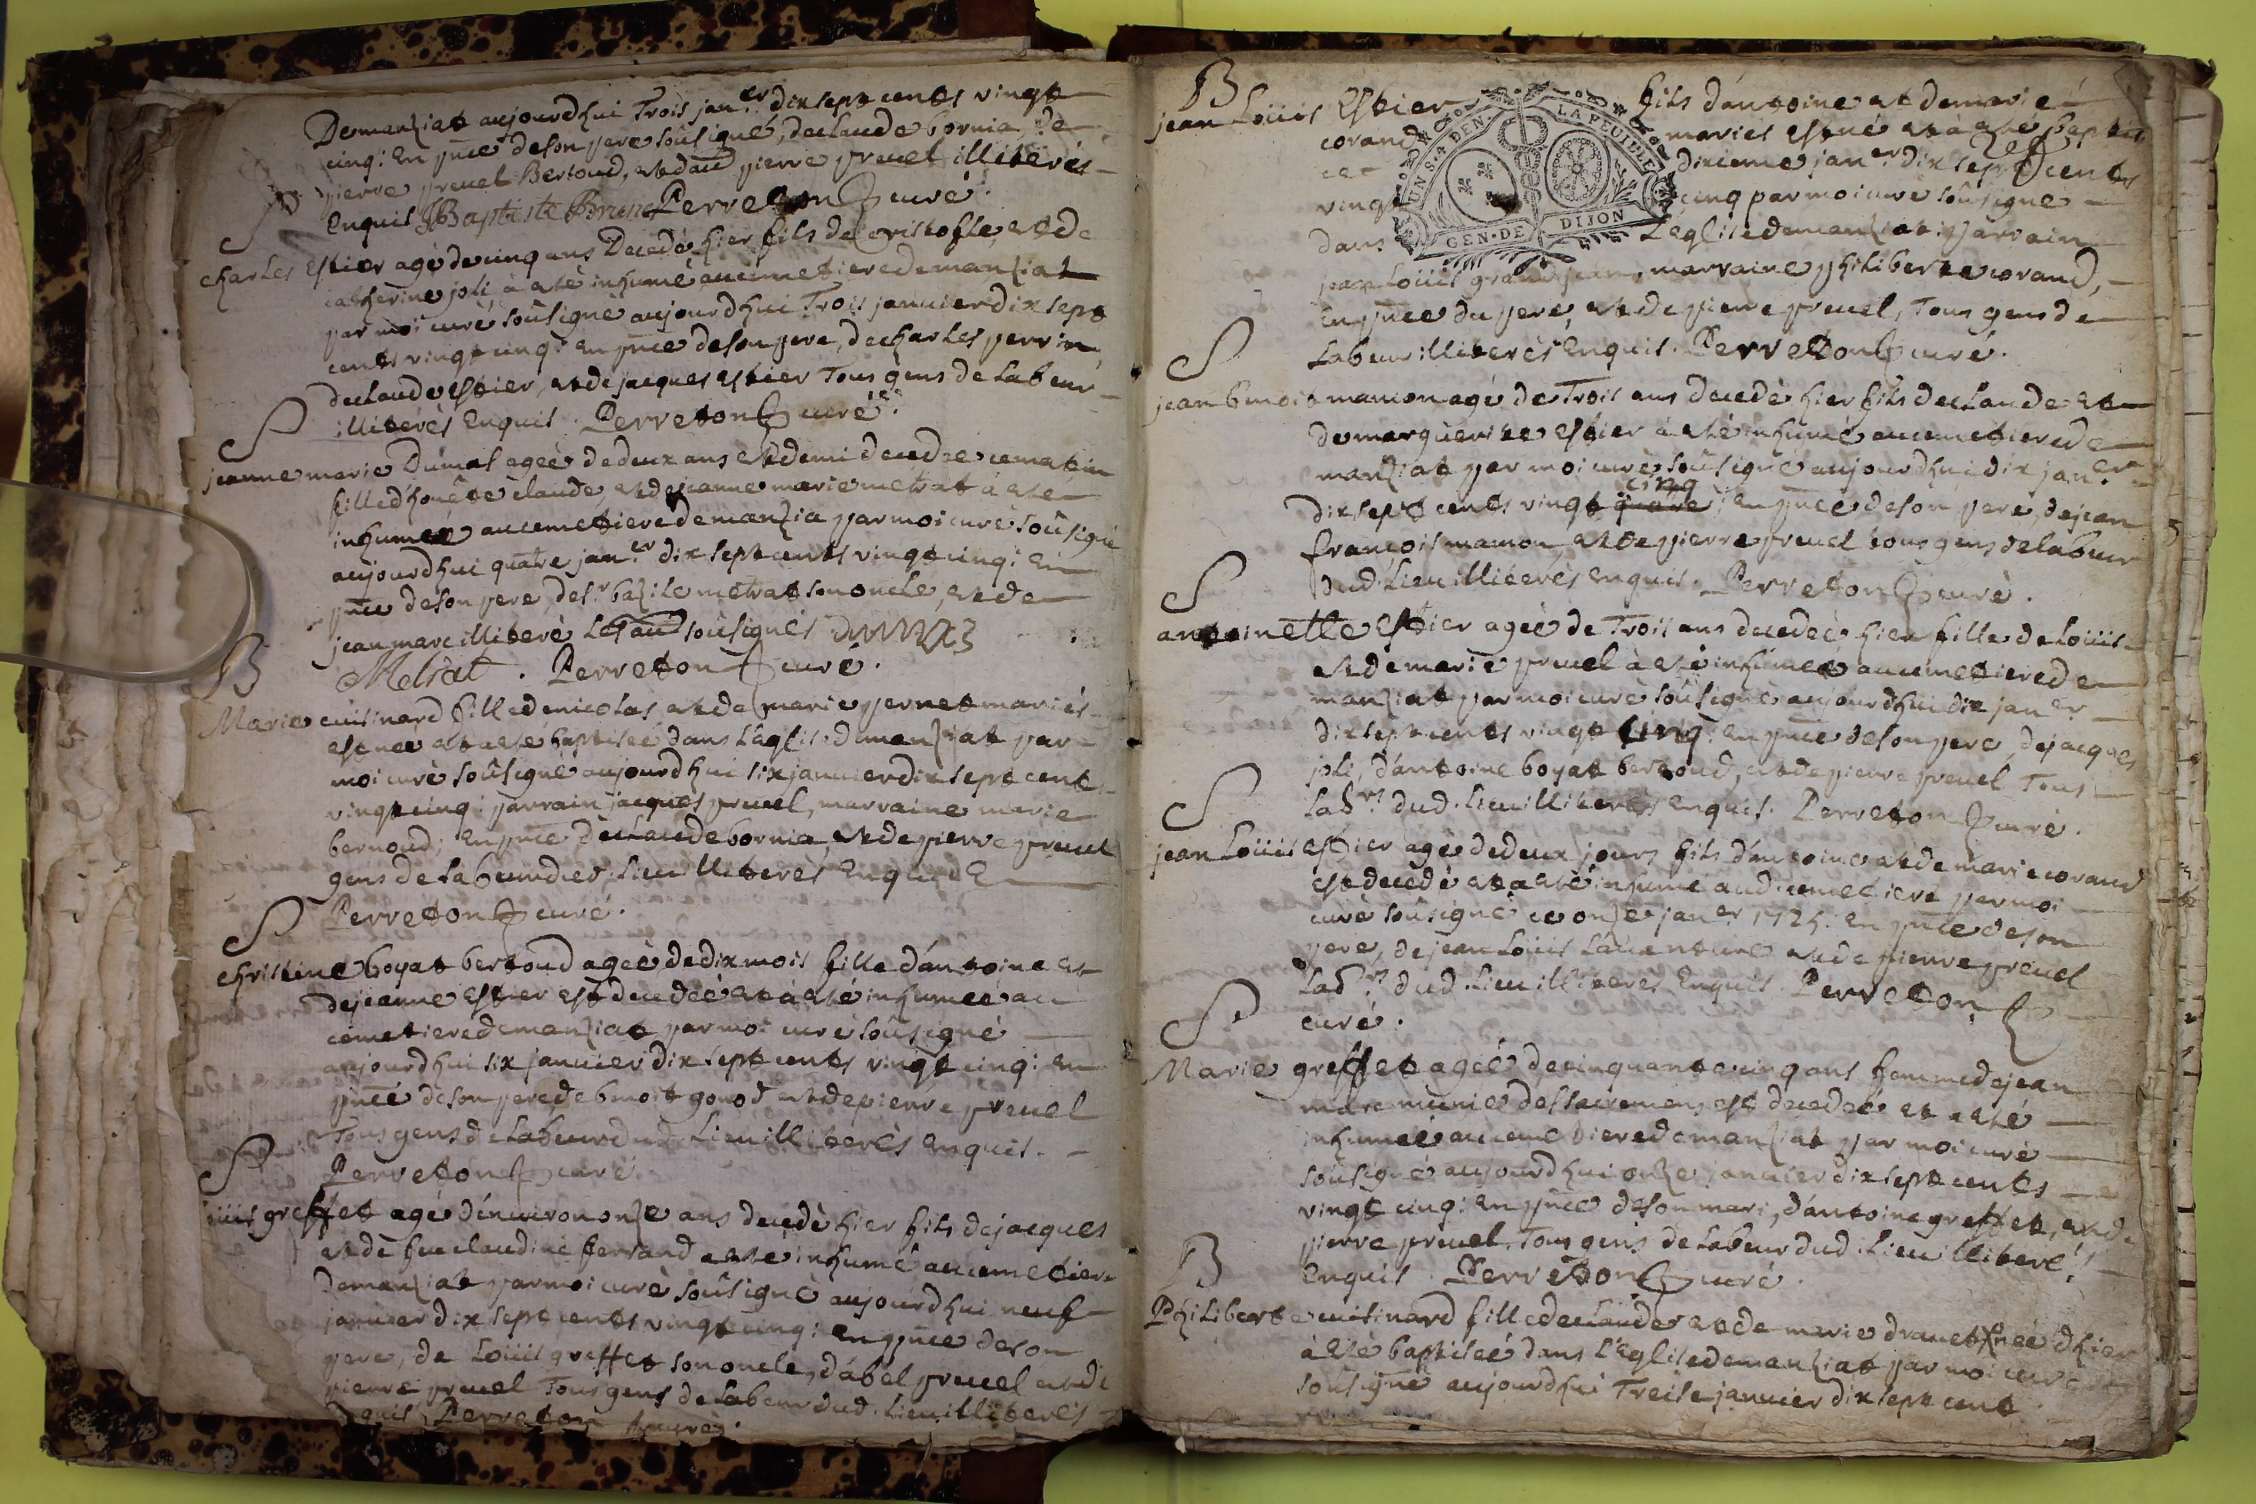 Demanziat aujourdhui Trois jan.er dix sept cents vingt
cinq: En pnce de son pere soûsigné, de claude bornia, de
pierre preuel Bertoud, et dau pierre preuel illiterés
Enquis JBaptiste Brune Perreton curé.
S
charles Estier agé de cinq ans Decedé hier fils de cristofle et de
catherine joli, à eté inhumé au cimetiere de manziat
par moi curé soûsigné aujourdhui Trois janvier dix sept
cents vingt cinq: En pnce de son pere, de charles perrin
de claude Estier, et de jacques estier Tous gens de Labeur
illiterés Enquis. Perreton curé.
S
jeanne marie Dumas ageé de deux ans et demi decedeé ce matin
fille d'honête claude, et de jeanne marie metrat à eté
inhumeé au cemetiere de manzia par moi curé soûsigné
aujourdhui quatre jan.er dix sept cents vingt cinq: En
pnce de son pere, de s.r bazile metrat son oncle, et de
jean marc illiteré Les au soûsignés
Metrat. Perreton curé.
B
Marie cuisinard fille de nicolas et de marie pernet mariés
est neé et a eté baptiseé dans L'eglise de manziat par
moi curé soûsigné aujourdhui six janvier dix sept cent
vingt cinq: parrain jacques preuel, marraine marie
bernoud; En pnce de claude bornia et de pierre preuel
gens de Labeur dud. Lieu illiterés Enquis
Perreton curé.
S
christine boyat bertoud ageé de dix mois fille d'antoine et
de jeanne Estier est decedeé et à eté inhumeé au
cemetiere de manziat par moi curé soûsigné
aujourdhui six janvier dix sept cents vingt cinq: En
pnce de son pere, de bnoit gonod et de pierre preuel
Tous gens de Labeur dud. Lieu illiterés Enquis.
Perreton curé.
S
Loüis greffet agé d'environ onze ans decedé hier fils de jacques
et de fue claudine ferrand a eté inhumé au cemetiere
de manziat par moi curé soûsigné aujourdhui neuf
janvier dix sept cents vingt cinq: En pnce de son
pere, de Loüis greffet son oncle, d'abel preuel et de
pierre preuel Tous gens de Labeur dud. Lieu illiterés
Enquis Perreton curé.
B
jean Loüis Estier fils d'antoine et de marie
corand mariés est né et à eté baptisé
ce dixieme jan.er dix sept cents
vingt cinq par moi curé soûsigné
dans L'eglise de manziat parrain
GEN. DE DIJON
LA FEUILLE
jean Loüis grandjean, marraine philiberte corand,
En pnce du pere, et de pierre preuel, Tous gens de
Labeur illiterés Enquis. Perreton curé.
S
jean bnoit mamon agé de Trois ans decedé hier fils de claude et
de marguerite estier à eté inhumé au cemetiere de
manziat par moi curé soûsigné aujourdhui dix jan.er
cinq
dix sept cents vingt quatre: en pnce de son pere, de jean
françois mamon, et de pierre preuel tous gens de labeur
dud. Lieu illiterés Enquis. Perreton curé.
S
antoinette Estier ageé de Trois ans decedeé hier fille de Loüis
et de marie preuel à eté inhumeé au cemetiere de
manziat par moi curé soûsigné aujourdhui dix jan.er
dix sept cents vingt cinq: En pnce de son pere, de jacques
joli, d'antoine boyat bertoud, et de pierre preuel Tous
Lab.rs dud. Lieu illiterés Enquis. Perreton curé.
S
jean Loüis Estier agé de deux jours fils d'antoine et de marie corand
est decedé et a eté inhumé aud. cemetiere par moi
curé soûsigné ce onze jan.er 1725: En pnce de son
pere, de jean Loüis Lauenture et de pierre preuel
Lab.rs dud. Lieu illiterés Enquis. Perreton
curé.
S
Marie greffet ageé de cinquante cinq ans femme de jean
marc munie des sacremens est decedeé et a eté
inhumeé au cemetiere de manziat par moi curé
soûsigné aujourdhui onze janvier dix sept cents
vingt cinq: En pnce de son mari, d'antoine greffet, et de
pierre preuel Tous gens de Labeur dud. Lieu illiterés
Enquis. Perreton curé.
B
Philiberte cuisinard fille de claude et de marie drauet neé d'hier
à eté baptiseé dans L'Eglise de manziat par moi curé
soûsigné aujourdhui Treise janvier dix sept cent